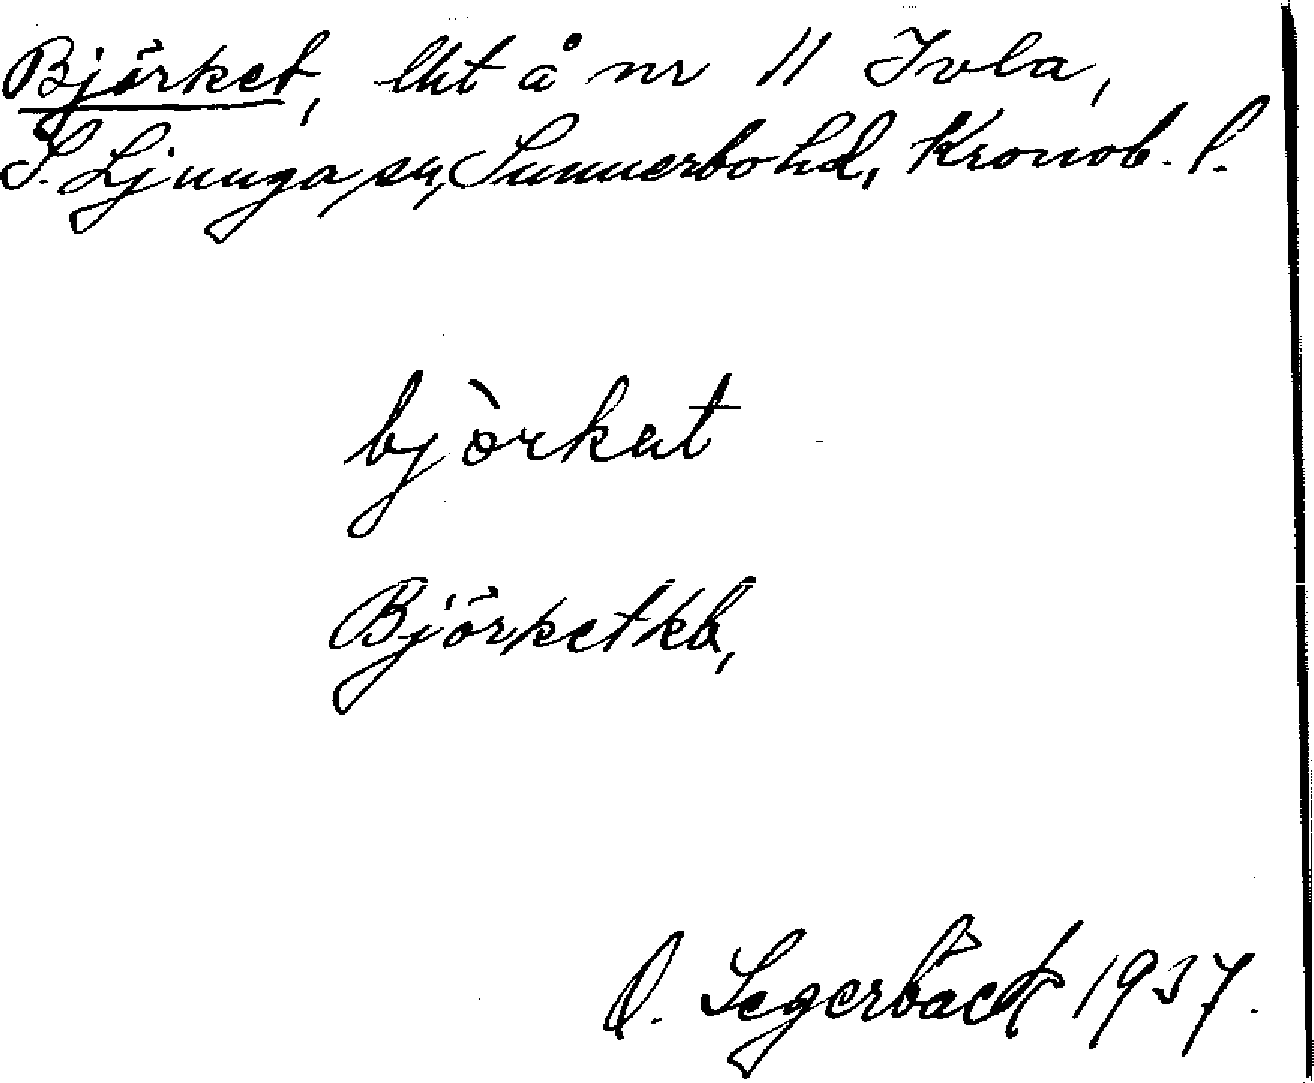 Björket, lht å nr 11 Ivla,
S. Ljunga sn, Sunnerbo hd, Kronob. l.
bjòrkat
Björket kb,
O. Segerbäck 1937.